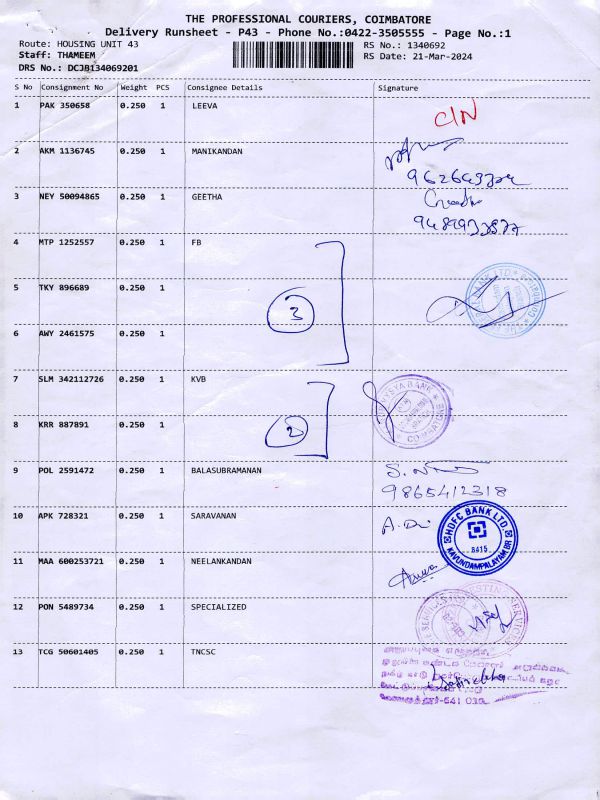 THE PROFESSIONAL COURIERS, COIMBATORE
Delivery Runsheet - P43 - Phone No.:0422-3505555 - Page No.:1
Route: HOUSING UNIT 43
RS No.: 1340692
Staff: THAMEEM
RS Date: 21-Mar-2024
DRS No.: DCJB134069201
S No Consignment No Weight PCS Consignee Details Signature
1 PAK 350658 0.250 1 LEEVA
C/N
2 AKM 1136745 0.250 1 MANIKANDAN
3 NEY 50094865 0.250 1 GEETHA
4 MTP 1252557 0.250 1 FB
5 TKY 896689 0.250 1
3
6 AWY 2461575 0.250 1
7 SLM 342112726 0.250 1 KVB
VYSYA BANK
COIMBATORE
8 KRR 887891 0.250 1
2
9 POL 2591472 0.250 1 BALASUBRAMANAN
9865412318
10 APK 728321 0.250 1 SARAVANAN
HDFC BANK LTD.
8415
KAVUNDAMPALAYAM BR
11 MAA 600253721 0.250 1 NEELANKANDAN
12 PON 5489734 0.250 1 SPECIALIZED
13 TCG 50601405 0.250 1 TNCSC